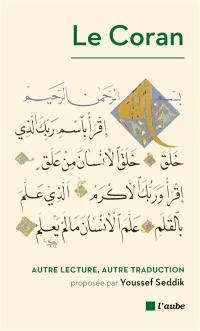 Le Coran
بسم الله الرحمن الرحيم
اقرأ باسم ربك الذي
خلق خلق الإنسان من علق
اقرأ وربك الأكرم الذي علم
بالقلم علم الإنسان ما لم يعلم
AUTRE LECTURE, AUTRE TRADUCTION
proposée par Youssef Seddik
l'aube